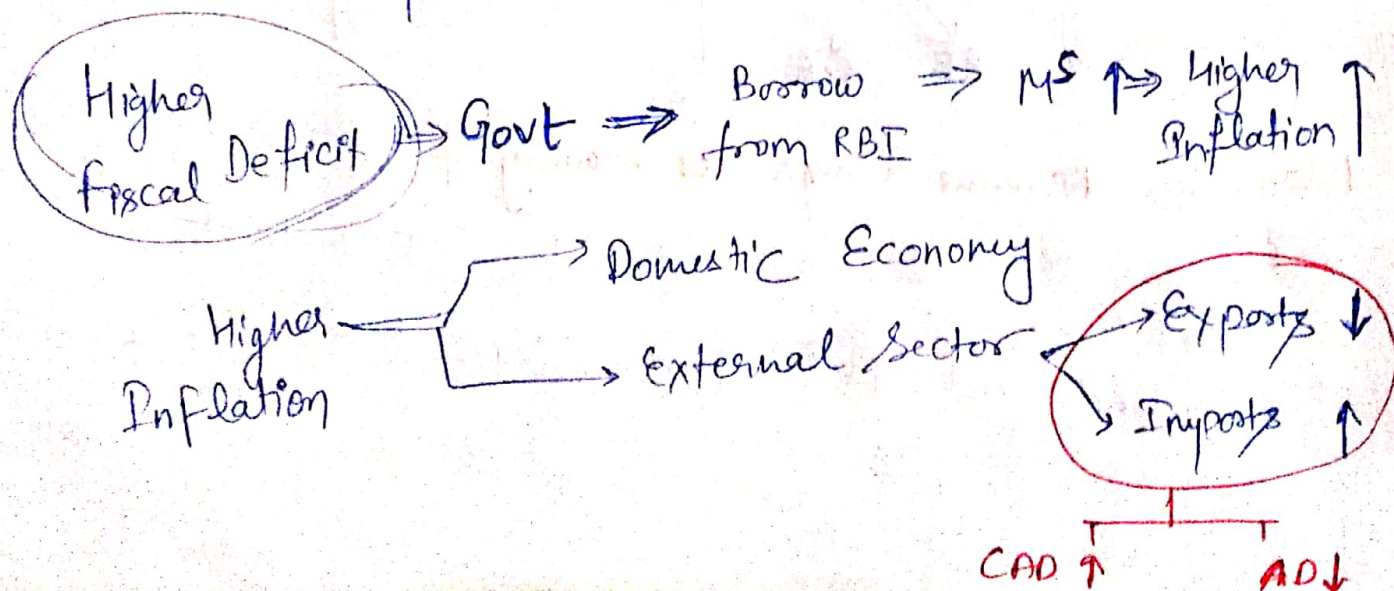 Higher
Fiscal Deficit ⇒ Govt ⇒ Borrow from RBI ⇒ MS ↑ ⇒ Higher Inflation ↑
Higher Inflation
→ Domestic Economy
→ External Sector
→ Exports ↓
→ Imports ↑
CAD ↑ AD↓